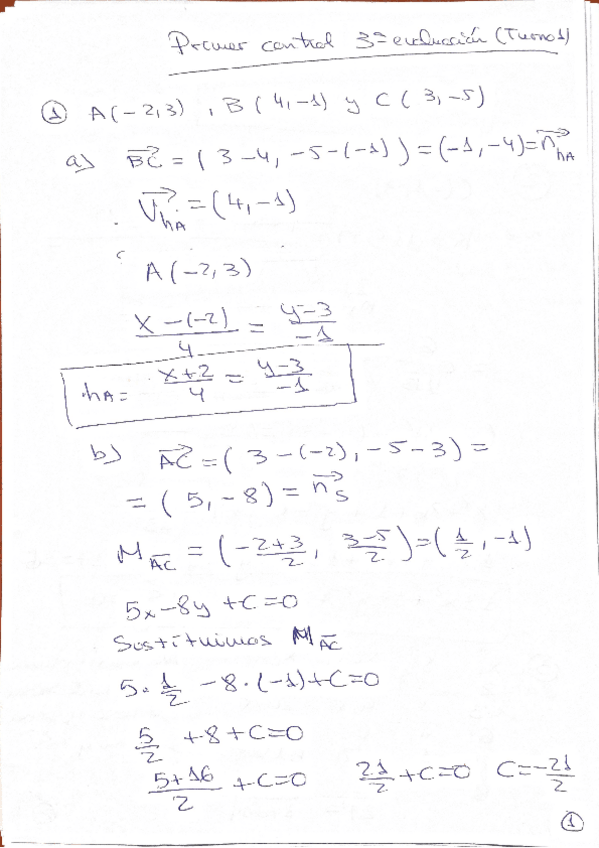 Primer control 3ª evaluación (Turno 1)
① A(-2,3) , B(4,-1) y C(3,-5)
a) BC⃗ = (3-4, -5-(-1)) = (-1,-4) = n⃗hA
V⃗hA = (4,-1)
A(-2,3)
x-(-2)/4 = y-3/-1
hA = x+2/4 = y-3/-1
b) AC⃗ = (3-(-2), -5-3) =
= (5,-8) = n⃗s
M AC = (-2+3/2, 3-5/2) = (1/2, -1)
5x-8y+C=0
Sustituimos M AC
5·1/2 -8·(-1)+C=0
5/2 +8+C=0
5+16/2 +C=0 21/2 +C=0 C=-21/2
①